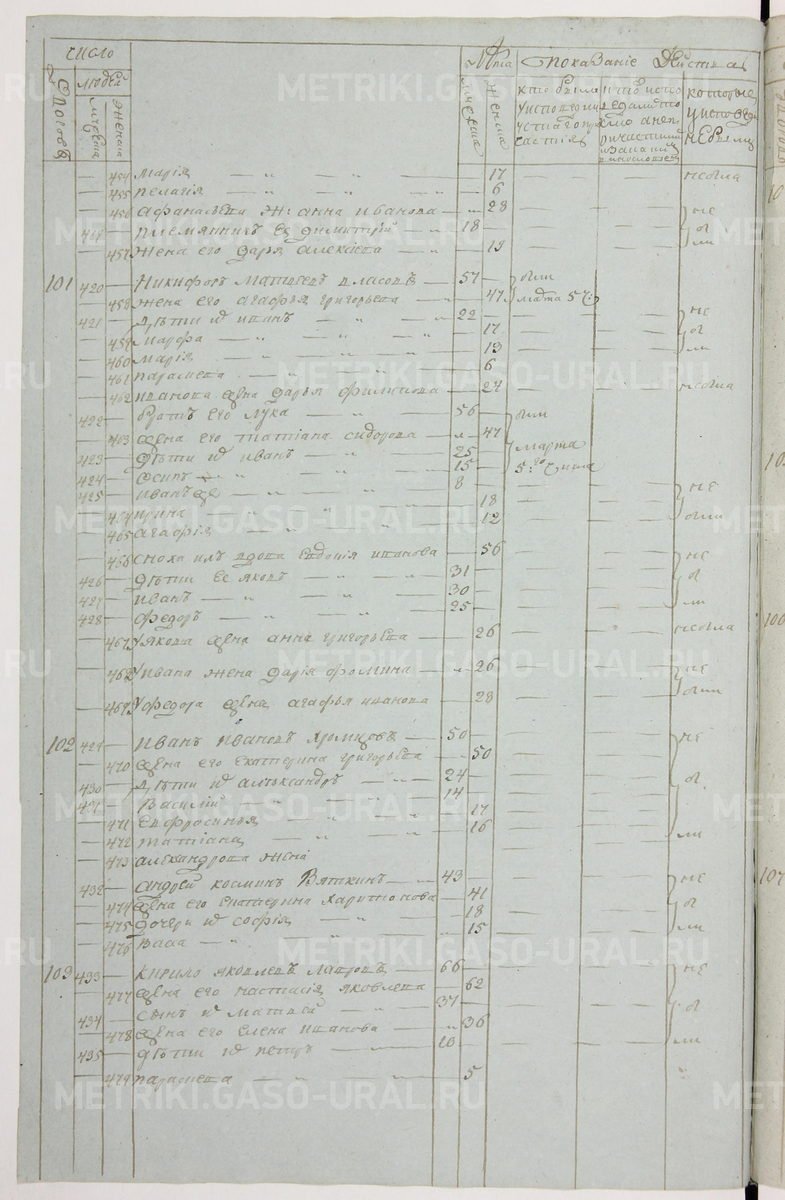 число
людей
мужеска
женска
Лѣта
мужеска
женска
Показаніе Дѣйства
которые
у исповеди
не были
454 Марія 17 не была
455 Пелагія 6
456 Афанасьева жена анна иванова 28 не
племянникъ ея димитрій 18 бы
457 жена его дарья алексѣева 19 ли
101 420 Никифоръ Матвѣевъ власовъ 57 были
458 жена его агафья григорьева 47 марта 5 ч:
421 дѣти их иванъ 22 не
459 Марфа 17 бы
460 марія 13 ли
461 парасковія 6
462 иванова жена дарья филипова 27 не была
422 братъ его лука 56 были
463 жена его татіана сидорова 47
423 дѣти их иванъ 25 марта
424 осипъ 15 5:го числа
425 иванъ же 8 не
464 ирина 18
465 агафія 12 были
466 сноха ихъ вдова евдокія иванова 56 не
426 дѣти ее яковъ 31 бы
427 иванъ 30
428 федоръ 25 ли
467 у якова жена анна григорьева 26 не была
468 у ивана жена дарія фомина 26 не
469 у федора жена агафья иванова 28 были
102 429 Иванъ Ивановъ 50 не
470 жена его екатерина григорьева 50
430 дѣти их алѣксандръ 24 бы
431 Василій 14
471 евфросинья 17
472 татіана 16 ли
473 александрова жена
432 андрей космин Вяткинъ 43 не
474 жена его екатерина харитонова 41
475 дочери их софія 18 бы
476 Васа 15 ли
103 433 кирило яковлевъ лавровъ 66 не
477 жена его настасія яковлева 62
434 сынъ их матвей 37 бы
478 жена его елена иванова 36
435 дѣти их петръ 10 ли
479 парасковія 5
METRIKI.GASO-URAL.RU